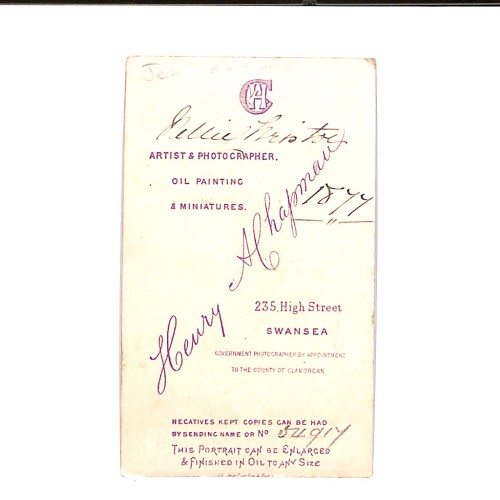 HAC
Nellie Bristow
ARTIST & PHOTOGRAPHER,
OIL PAINTING
& MINIATURES.
1877
Henry A Chapman
235, High Street
SWANSEA
GOVERNMENT PHOTOGRAPHER BY APPOINTMENT
TO THE COUNTY OF GLAMORGAN
NEGATIVES KEPT COPIES CAN BE HAD
BY SENDING NAME OR No 54917
THIS PORTRAIT CAN BE ENLARGED
& FINISHED IN OIL TO ANY SIZE